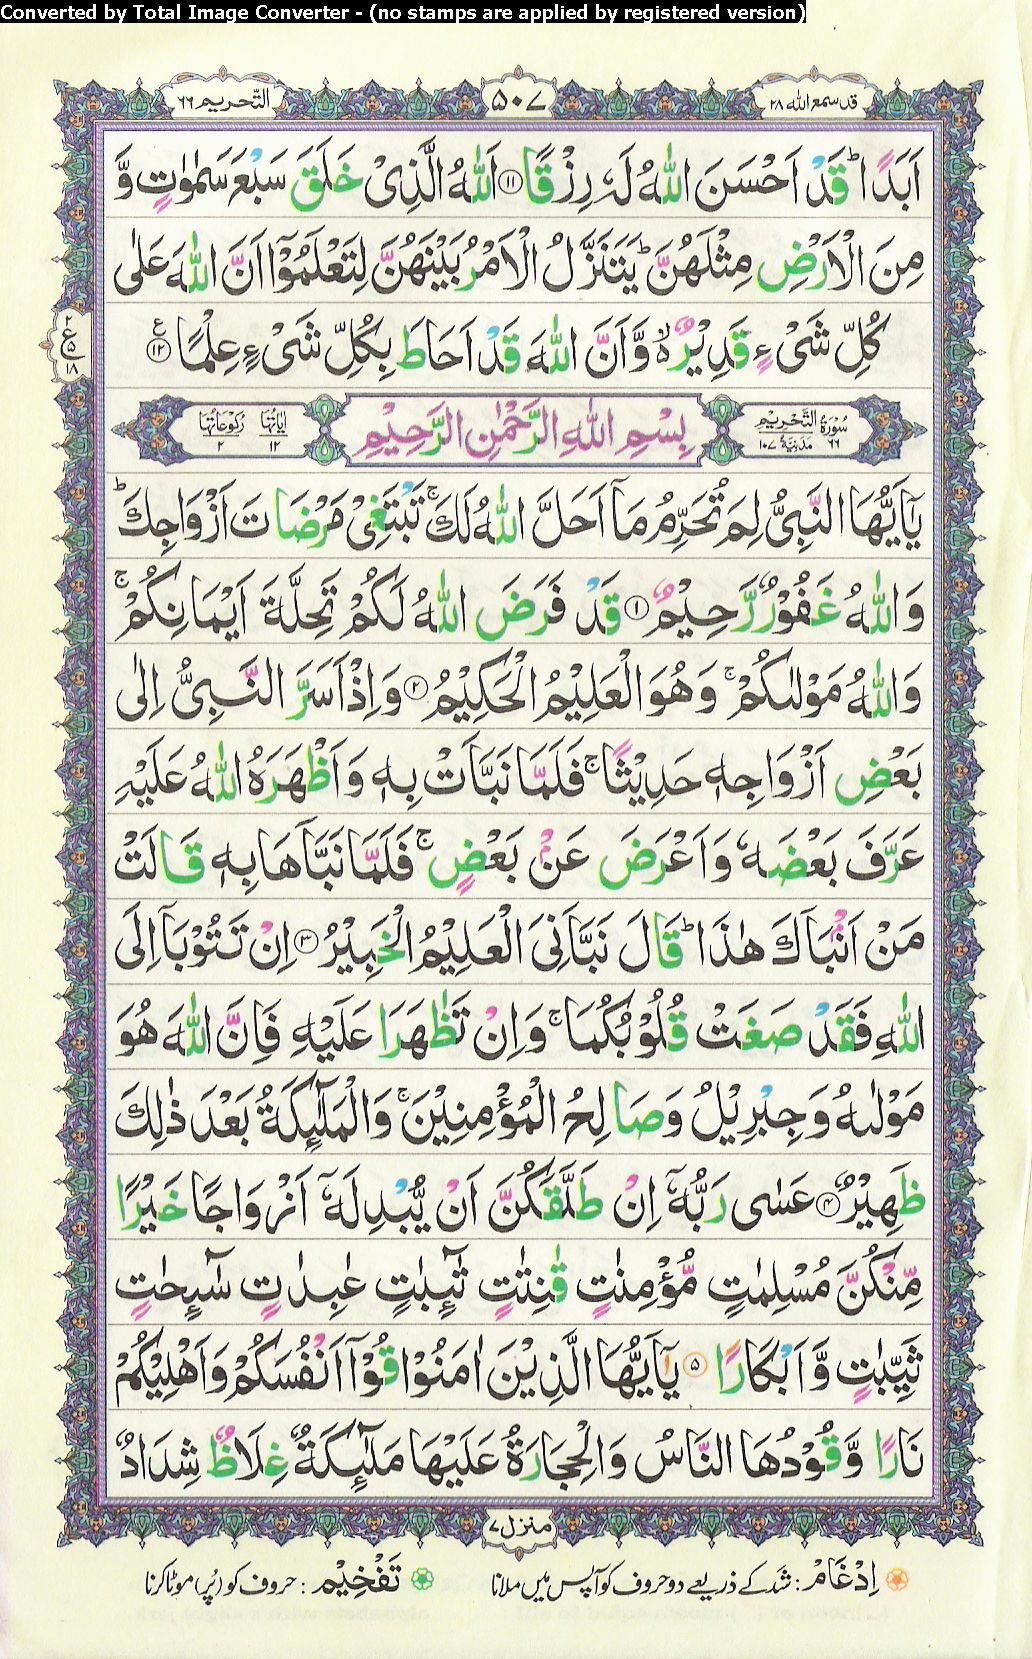 Converted by Total Image Converter - (no stamps are applied by registered version)
قد سمع اللہ ۲۸
۵۰۷
التّحریم ۶۶
اَبَدًا ؕ قَدْ اَحْسَنَ اللّٰهُ لَهٗ رِزْقًا ۱۱ اَللّٰهُ الَّذِیْ خَلَقَ سَبْعَ سَمٰوٰتٍ وَّ
مِنَ الْاَرْضِ مِثْلَهُنَّ ؕ یَتَنَزَّلُ الْاَمْرُ بَیْنَهُنَّ لِتَعْلَمُوْۤا اَنَّ اللّٰهَ عَلٰی
كُلِّ شَیْءٍ قَدِیْرٌ ۙ۬ وَّ اَنَّ اللّٰهَ قَدْ اَحَاطَ بِكُلِّ شَیْءٍ عِلْمًا ۱۲ ع
۲ ع ۵ ۱۸
سُوْرَةُ التَّحْرِیْمِ ۶۶ مَدَنِیَّةٌ ۱۰۷
بِسْمِ اللّٰهِ الرَّحْمٰنِ الرَّحِیْمِ
اٰیَاتُهَا ۱۲
رُكُوْعَاتُهَا ۲
یٰۤاَیُّهَا النَّبِیُّ لِمَ تُحَرِّمُ مَاۤ اَحَلَّ اللّٰهُ لَكَ ۚ تَبْتَغِیْ مَرْضَاتَ اَزْوَاجِكَ ؕ
وَ اللّٰهُ غَفُوْرٌ رَّحِیْمٌ ۱ قَدْ فَرَضَ اللّٰهُ لَكُمْ تَحِلَّةَ اَیْمَانِكُمْ ۚ
وَ اللّٰهُ مَوْلٰىكُمْ ۚ وَ هُوَ الْعَلِیْمُ الْحَكِیْمُ ۲ وَ اِذْ اَسَرَّ النَّبِیُّ اِلٰی
بَعْضِ اَزْوَاجِهٖ حَدِیْثًا ۚ فَلَمَّا نَبَّاَتْ بِهٖ وَ اَظْهَرَهُ اللّٰهُ عَلَیْهِ
عَرَّفَ بَعْضَهٗ وَ اَعْرَضَ عَنْۢ بَعْضٍ ۚ فَلَمَّا نَبَّاَهَا بِهٖ قَالَتْ
مَنْ اَنْۢبَاَكَ هٰذَا ؕ قَالَ نَبَّاَنِیَ الْعَلِیْمُ الْخَبِیْرُ ۳ اِنْ تَتُوْبَاۤ اِلَی
اللّٰهِ فَقَدْ صَغَتْ قُلُوْبُكُمَا ۚ وَ اِنْ تَظٰهَرَا عَلَیْهِ فَاِنَّ اللّٰهَ هُوَ
مَوْلٰىهُ وَ جِبْرِیْلُ وَ صَالِحُ الْمُؤْمِنِیْنَ ۚ وَ الْمَلٰٓىِٕكَةُ بَعْدَ ذٰلِكَ
ظَهِیْرٌ ۴ عَسٰی رَبُّهٗۤ اِنْ طَلَّقَكُنَّ اَنْ یُّبْدِلَهٗۤ اَزْوَاجًا خَیْرًا
مِّنْكُنَّ مُسْلِمٰتٍ مُّؤْمِنٰتٍ قٰنِتٰتٍ تٰٓىِٕبٰتٍ عٰبِدٰتٍ سٰٓىِٕحٰتٍ
ثَیِّبٰتٍ وَّ اَبْكَارًا ۵ یٰۤاَیُّهَا الَّذِیْنَ اٰمَنُوْا قُوْۤا اَنْفُسَكُمْ وَ اَهْلِیْكُمْ
نَارًا وَّ قُوْدُهَا النَّاسُ وَ الْحِجَارَةُ عَلَیْهَا مَلٰٓىِٕكَةٌ غِلَاظٌ شِدَادٌ
منزل ۷
اِدْغَام : شد کے ذریعے دو حروف کو آپس میں ملانا
تَفْخِیْم : حروف کو (پُر) موٹا کرنا